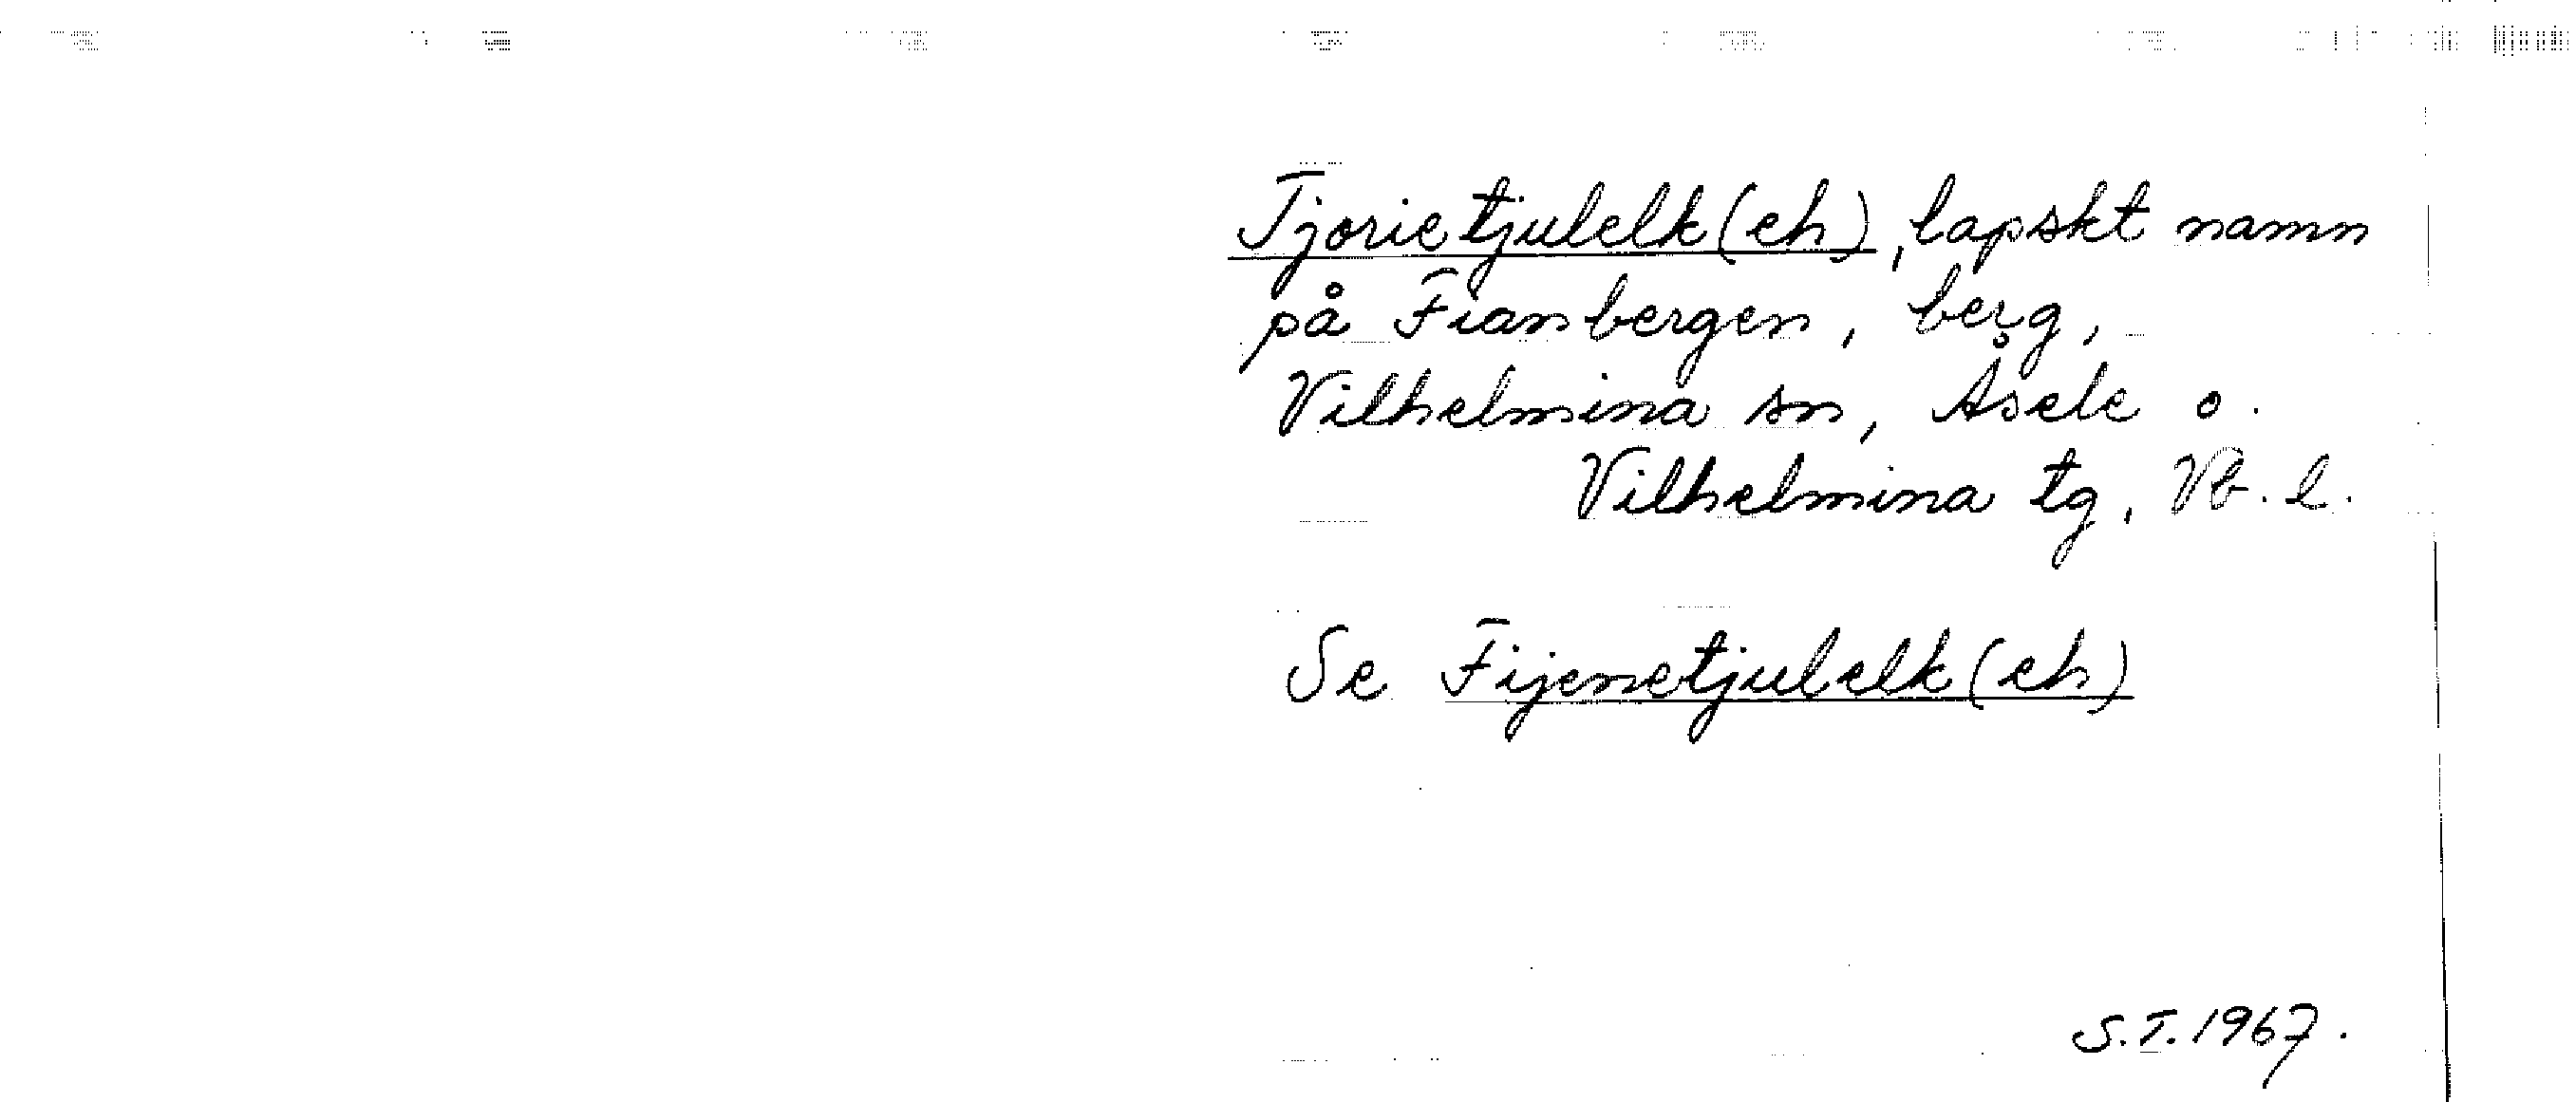 Tjorietjulelk(eh), lapskt namn
på Fianbergen, berg,
Vilhelmina sn, Åsele o.
Vilhelmina tg, Vb. l.
Se Fijenetjulelk(eh)
S.T. 1967.